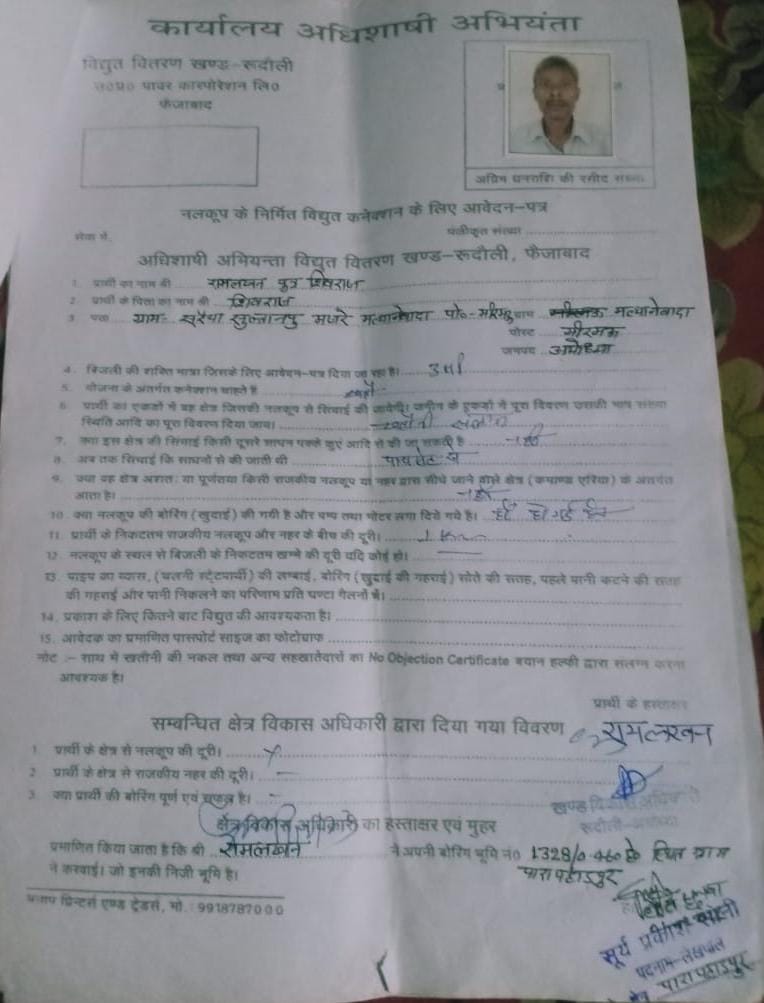 कार्यालय अधिशाषी अभियंता
विद्युत वितरण खण्ड-रूदौली
उ०प्र० पावर कारपोरेशन लि०
फैजाबाद
अग्रिम धनराशि की रसीद संख्या
नलकूप के निर्मित विद्युत कनेक्शन के लिए आवेदन-पत्र
सेवा में,
पंजीकृत संख्या
अधिशाषी अभियन्ता विद्युत वितरण खण्ड-रूदौली, फैजाबाद
1. प्रार्थी का नाम श्री रामलखन पुत्र शिवराज
2. प्रार्थी के पिता का नाम श्री शिवराज
3. पता ग्राम- सरैया सुल्तानपुर मजरे मत्थानेवादा पो०- ग्राम मत्थानेवादा
पोस्ट मीरमऊ
जनपद अयोध्या
4. बिजली की शक्ति मात्रा जिसके लिए आवेदन-पत्र दिया जा रहा है।
5. योजना के अतर्गत कनेक्शन चाहते है
6. प्रार्थी का एकडों में वह क्षेत्र जिसकी नलकूप से सिचाई की जायेगी। जमीन के टुकडों ने पूरा विवरण उसकी भाप संख्या
स्थिति आदि का पूरा विवरण दिया जाय। खतौनी संलग्न
7. क्या इस क्षेत्र की सिंचाई किसी दूसरे साधन पक्के कुएं आदि से की जा सकती है नहीं
8. अब तक सिंचाई कि साधनों से की जाती थी
9. क्या वह क्षेत्र अशतः या पूर्णतया किसी राजकीय नलकूप या नहर द्वारा सीचे जाने वाले क्षेत्र (कमाण्ड एरिया) के अतर्गत
आता है। नहीं
10. क्या नलकूप की बोरिंग (खुदाई) की गयी है और पम्प तथा मोटर लगा दिये गये है। हाँ हो गई है
11. प्रार्थी के निकटतम राजकीय नलकूप और नहर के बीच की दूरी।
12. नलकूप के स्थल से बिजली के निकटतम खम्भे की दूरी यदि कोई हो।
13. पाइप का व्यास, (चलनी स्टेटपार्थी) की लम्बाई, बोरिंग (खुदाई की गहराई) सोते की सतह, पहले पानी कटने की सतह
की गहराई और पानी निकलने का परिणाम प्रति घण्टा गैलनों में।
14. प्रकाश के लिए कितने बाट विद्युत की आवश्यकता है।
15. आवेदक का प्रमाणित पासपोर्ट साइज का फोटोग्राफ
नोट :- साथ में खतौनी की नकल तथा अन्य सहखातेदारों का No Objection Certificate बयान हल्फी द्वारा संलग्न करना
आवश्यक है।
प्रार्थी के हस्ताक्षर
सम्बन्धित क्षेत्र विकास अधिकारी द्वारा दिया गया विवरण रामलखन
1. प्रार्थी के क्षेत्र से नलकूप की दूरी।
2. प्रार्थी के क्षेत्र से राजकीय नहर की दूरी।
3. क्या प्रार्थी की बोरिंग पूर्ण एवं सफल है।
खण्ड विकास अधिकारी
रूदौली-अयोध्या
क्षेत्र विकास अधिकारी का हस्ताक्षर एवं मुहर
प्रमाणित किया जाता है कि श्री रामलखन ने अपनी बोरिंग भूमि नं० 1328/0.460 हे० स्थित ग्राम
पारापहाड़पुर
ने करवाई। जो इनकी निजी भूमि है।
प्रताप प्रिन्टर्स एण्ड ट्रेडर्स, मो.: 9918787000
सूर्य प्रकाश
पदनाम-लेखपाल
क्षेत्र पारापहाडपुर